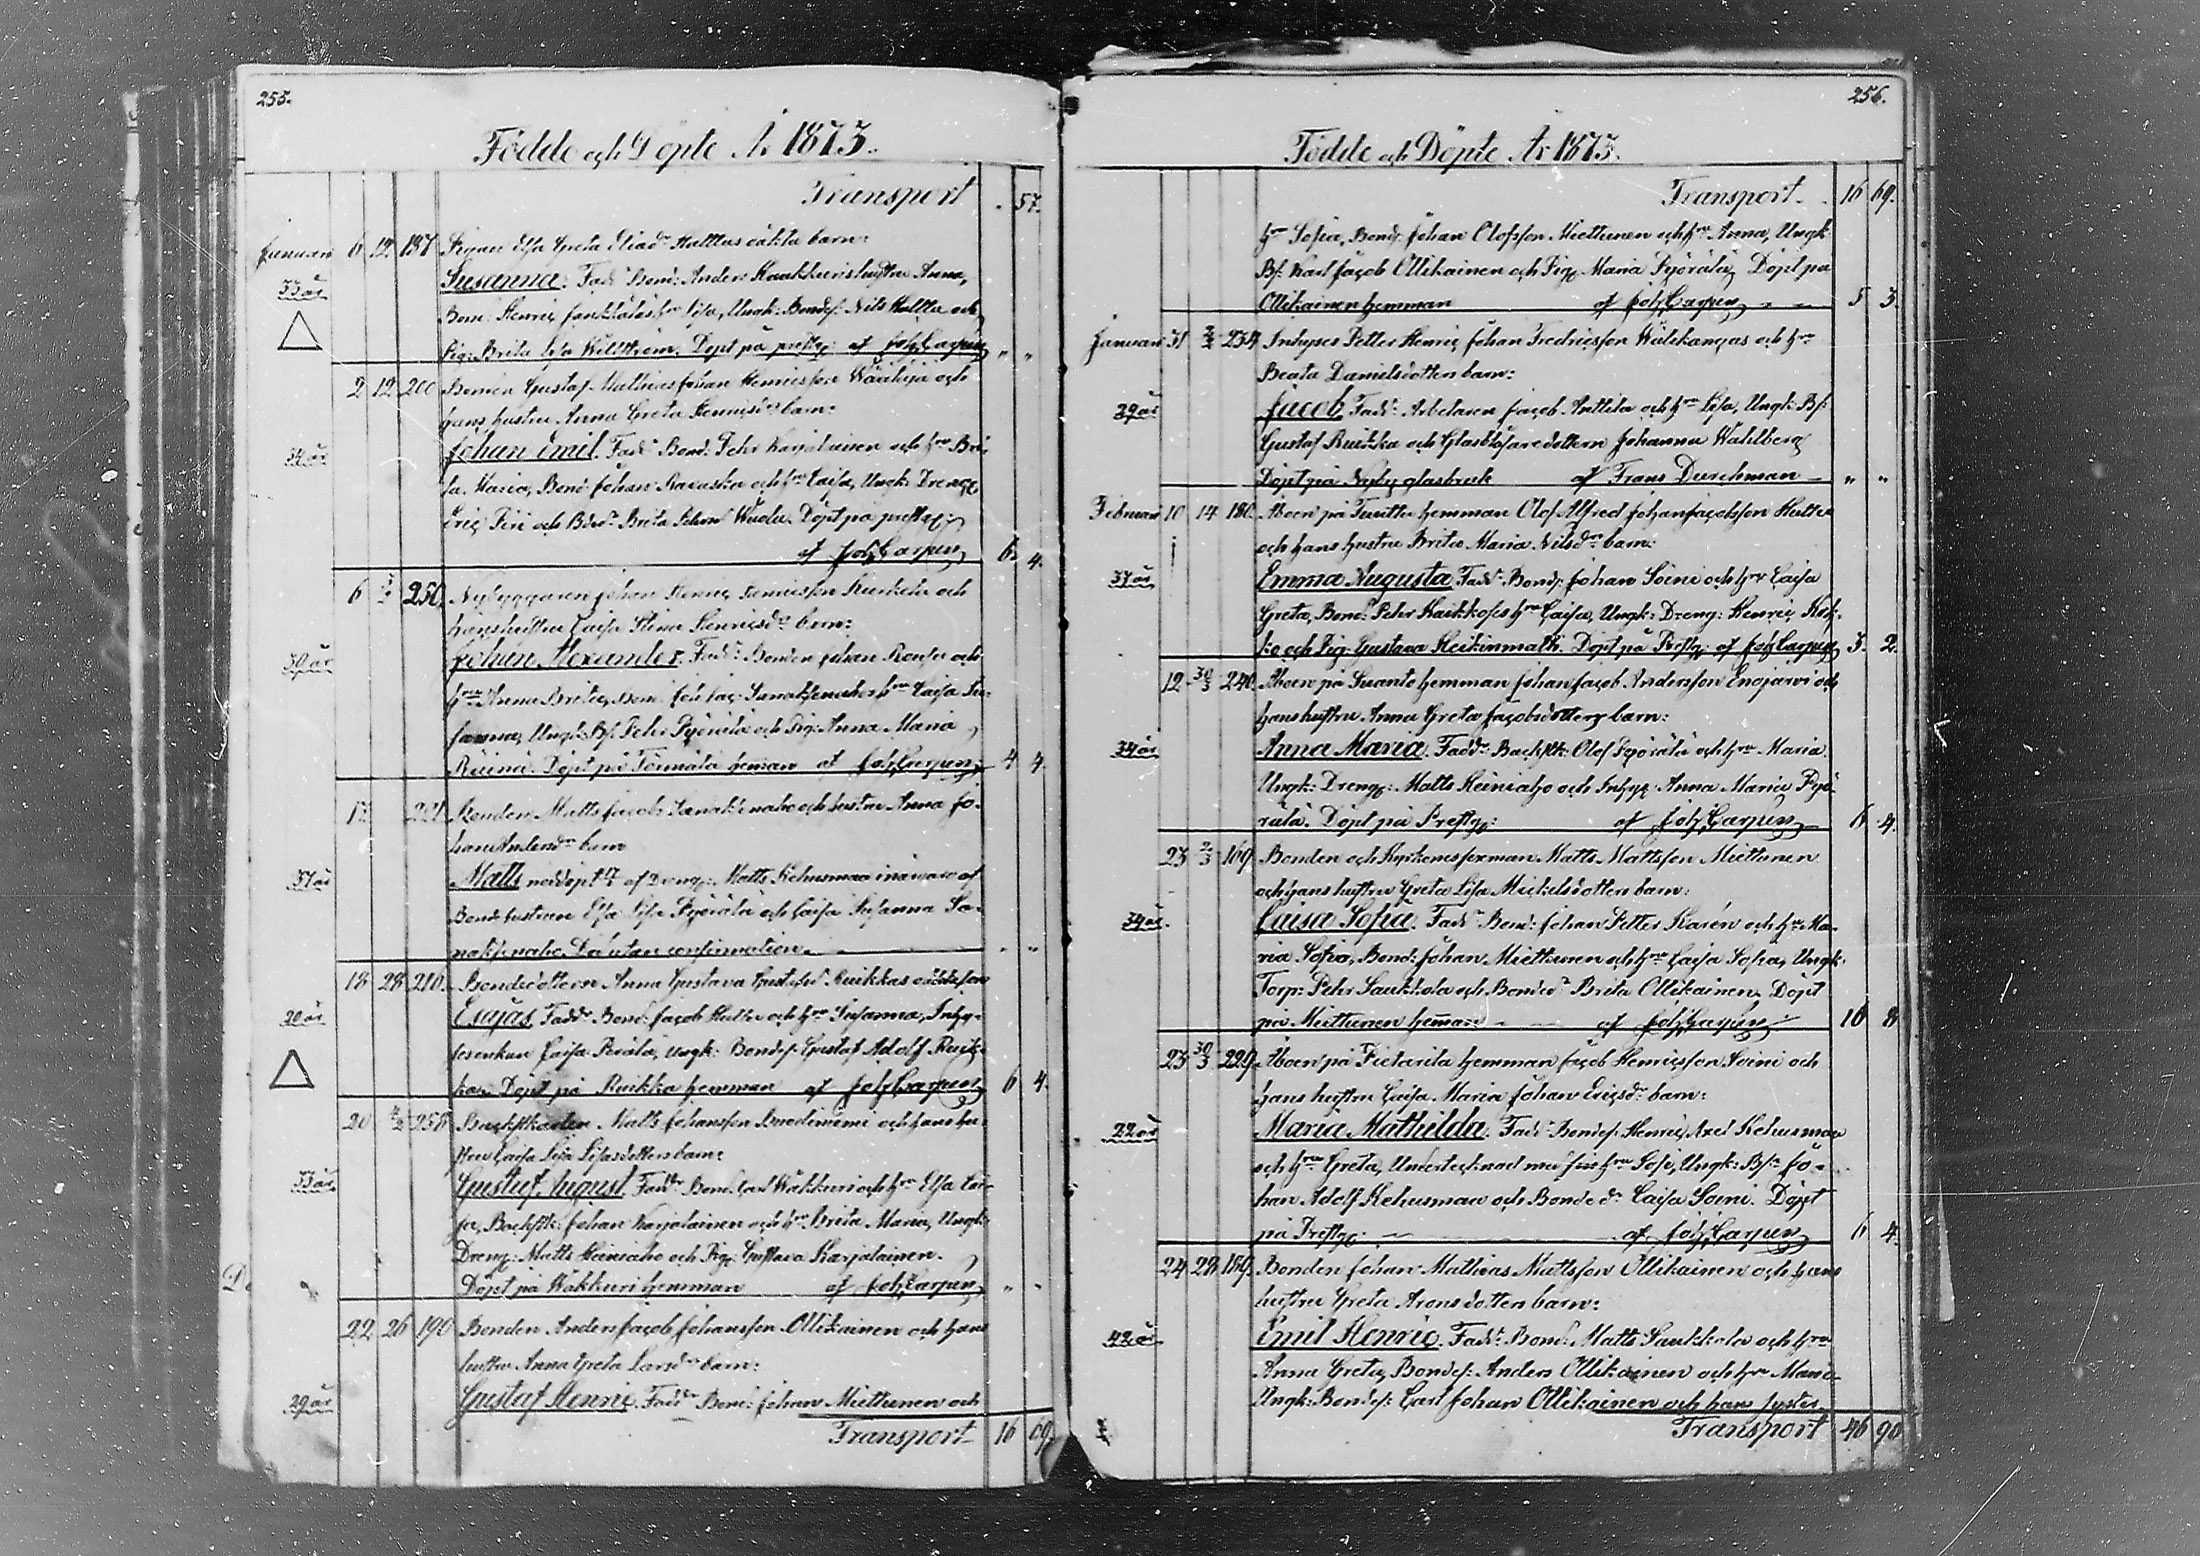 255.
Födde och Döpte År 1873.
Transport . 57.
Januari 6 12. 187 Pigan Elsa Greta Eliasdr Halttus oäkta barn:
33 år Susanna. Fadd: Bond: Anders hustru Anna,
Bond: Henric hru Lisa, Ungk: Bondes: Nils Haltta och
Pig: Brita Lisa Willström. Döpt på prestg: af Joh. Carpen " "
2 12 200 Bonden Gustaf Mathias Johan Henricsson och
hans hustru Anna Greta Henricsdr barn:
34 år Johan Emil. Fadd: Bond: Pehr Karjalainen och hru Bri-
ta Maria, Bond: Johan och hru Caisa, Ungk: Dreng:
Eric och Bdr Brita Döpt på prestg:
af Joh. Carpen 6. 4.
6 250. Nybyggaren Johan Henric Henricsson och
hans hustru Caisa Stina Henricsdr barn:
30 år Johan Alexander. Fadd: Bonden Johan och
hru Anna Brita, Bond: hru Caisa Su-
sanna, Ungk: Bs: Pehr Pyörälä och Pig: Anna Maria
Döpt på heman af Joh. Carpen 4 4.
17. 221. Bonden Matts Jacob och hustru Anna Jo-
han Andersdr barn
37 år Matts nöddöpt af Dreng: Matts Kehusmaa i närwaro af
Bond: hustrun Elsa Lisa Pyörälä och Caisa Susanna Sa-
Död utan confirmation. " "
18 28 210. Bondedottern Anna Gustava Ruikkas oäkta son
20 år Esajas. Fadd: Bond: Jacob och hru Susanna, Inhy-
sesenkan Caisa Perälä, Ungk: Bondes: Gustaf Adolf Ruik-
ka. Döpt på Ruikka hemman af Joh. Carpen 6 4.
20 258 Matts Johansson och hans hu-
stru Caisa Lisa dotters barn:
33 år Gustaf August. Fadd: Bond: Carl Wäkkuri och hru Elsa Cai-
sa, Backstk: Johan Karjalainen och hru Brita Maria, Ungk:
Dreng: Matts Heiniaho och Pig: Gustava Karjalainen.
Döpt på Wäkkuri hemman af Joh. Carpen " "
22 26 190 Bonden Anders Jacob Johansson Ollikainen och hans
hustru Anna Greta Larsdr barn:
29 år Gustaf Henric. Fadd: Bond: Johan Miettunen och
Transport 16 69.
256.
Födde och Döpte År 1873.
Transport 16 69.
hru Sofia, Bond: Johan Olofsson Miettunen och hru Anna, Ungk:
Bs: Karl Jacob Ollikainen och Pig: Maria Pyörälä, Döpt på
Ollikainen hemman af Joh. Carpen 5 3.
Januari 31 2/2 234 Inhyses Petter Henric Johan Fredricsson Wälikangas och hru
Beata Danielsdotters barn:
29 år Jacob. Fadd: Arbetaren Jacob Anttila och hru Lisa, Ungk: Bs:
Gustaf Ruikka och Glasblåsaredottern Johanna Wahlberg
Döpt på Nyby glasbruk af Frans Durchman " "
Februari 10 14 180. Åboen på hemman Olof Alfred Johan Jacobsson
och hans hustru Brita Maria Nilsdr barn:
37 år Emma Augusta. Fadd: Bond: Johan Soini och hru Caisa
Greta, Bond: Pehr hru Caisa, Ungk: Dreng: Henric Kok-
ko och Pig: Gustava Döpt på Prestg: af Joh. Carpen 3. 2.
12. 30/3 240. Åboen på Suanto hemman Johan Jacob Andersson Enojärwi och
hans hustru Anna Greta Jacobsdotters barn:
34 år Anna Maria. Fadd: Backstk: Olof Pyörälä och hru Maria.
Ungk: Dreng: Matts Heiniaho och Inhys: Anna Maria Pyö-
rälä. Döpt på Prestg: af Joh. Carpen 6 4.
23 2/3 169. Bonden och Kyrkones förman Matts Mattsson Miettunen
och hans hustru Greta Lisa Mickelsdotters barn:
34 år. Caisa Sofia. Fadd: Bond: Johan Petter Karén och hru Ma-
ria Sofia, Bond: Johan Miettunen och hru Caisa Sofia, Ungk:
Torp: Pehr Saukkola och Bonded: Brita Ollikainen, Döpt
på Miettunen heman af Joh. Carpen 10 8
23 30/3 229. Åboen på hemman Jacob Henricsson Soini och
hans hustru Caisa Maria Johan Ericsdr barn:
22 år Maria Mathilda. Fadd: Bondes: Henric Axel Kehusmaa
och hru Greta, Undertecknad med sin hru Sofi, Ungk: Bs: Jo-
han Adolf Kehusmaa och Bonde dr Caisa Soini. Döpt
på Prestg: af Joh. Carpen 6 4.
24 28 189. Bonden Johan Mathias Mattsson Ollikainen och hans
hustru Greta Aronsdotters barn:
42 år. Emil Henric. Fadd: Bond: Matts Saukkola och hru
Anna Greta, Bondes: Anders Ollikainen och hru Maria
Ungk: Bondes: Carl Johan Ollikainen och hans syster
Transport 46 90